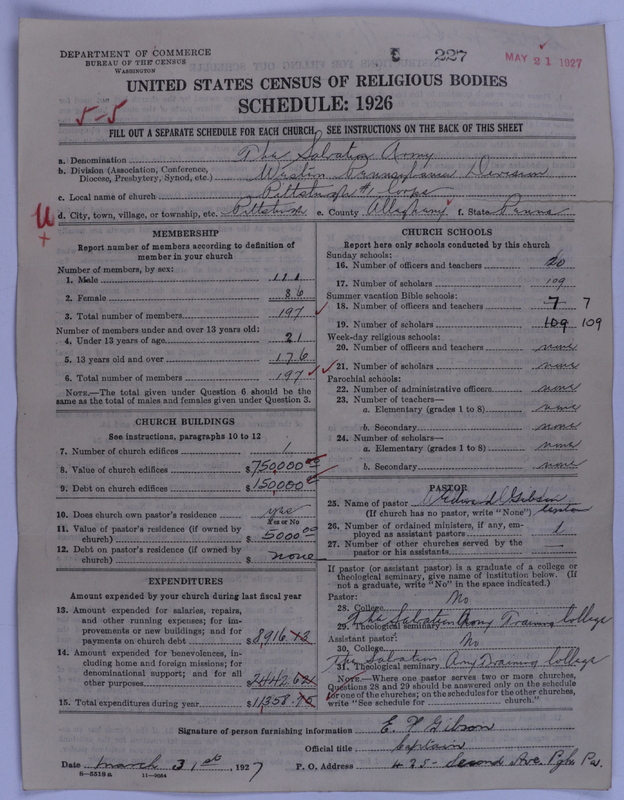 DEPARTMENT OF COMMERCE
BUREAU OF THE CENSUS
WASHINGTON
227
MAY 21 1927
UNITED STATES CENSUS OF RELIGIOUS BODIES
SCHEDULE: 1926
5-5
FILL OUT A SEPARATE SCHEDULE FOR EACH CHURCH. SEE INSTRUCTIONS ON THE BACK OF THIS SHEET
a. Denomination The Salvation Army
b. Division (Association, Conference,
Diocese, Presbytery, Synod, etc.) Western Pennsylvania Division
c. Local name of church Pittsburgh #1 Corps
d. City, town, village, or township, etc. Pittsburgh e. County Allegheny f. State Penna
MEMBERSHIP
Report number of members according to definition of
member in your church
Number of members, by sex:
1. Male 111
2. Female 86
3. Total number of members 197
Number of members under and over 13 years old:
4. Under 13 years of age 21
5. 13 years old and over 176
6. Total number of members 197
NOTE.—The total given under Question 6 should be the
same as the total of males and females given under Question 3.
CHURCH BUILDINGS
See instructions, paragraphs 10 to 12
7. Number of church edifices 1
8. Value of church edifices $750,000 00
9. Debt on church edifices $150,000 00
10. Does church own pastor's residence yes
Yes or No
11. Value of pastor's residence (if owned by
church) $5000 00
12. Debt on pastor's residence (if owned by
church) $ none
EXPENDITURES
Amount expended by your church during last fiscal year
13. Amount expended for salaries, repairs,
and other running expenses; for im-
provements or new buildings; and for
payments on church debt $8,916.
14. Amount expended for benevolences, in-
cluding home and foreign missions; for
denominational support; and for all
other purposes $2442
15. Total expenditures during year $11,358.
CHURCH SCHOOLS
Report here only schools conducted by this church
Sunday schools:
16. Number of officers and teachers 20
17. Number of scholars 109
Summer vacation Bible schools:
18. Number of officers and teachers 7 7
19. Number of scholars 109 109
Week-day religious schools:
20. Number of officers and teachers none
21. Number of scholars none
Parochial schools:
22. Number of administrative officers none
23. Number of teachers—
a. Elementary (grades 1 to 8) none
b. Secondary none
24. Number of scholars—
a. Elementary (grades 1 to 8) none
b. Secondary none
PASTOR
25. Name of pastor Gibson
(If church has no pastor, write "None")
26. Number of ordained ministers, if any, em-
ployed as assistant pastors 1
27. Number of other churches served by the
pastor or his assistants
If pastor (or assistant pastor) is a graduate of a college or
theological seminary, give name of institution below. (If
not a graduate, write "No" in the space indicated.)
Pastor:
28. College No
29. Theological seminary The Salvation Army Training College
Assistant pastor:
30. College No
31. Theological seminary The Salvation Army Training College
NOTE.—Where one pastor serves two or more churches,
Questions 28 and 29 should be answered only on the schedule
for one of the churches; on the schedules for the other churches,
write "See schedule for church."
Signature of person furnishing information E. Y. Gibson
Official title Captain
Date March 31st 1927 P. O. Address 425- Second Ave. Pgh Pa.
8-5518a 11-9084